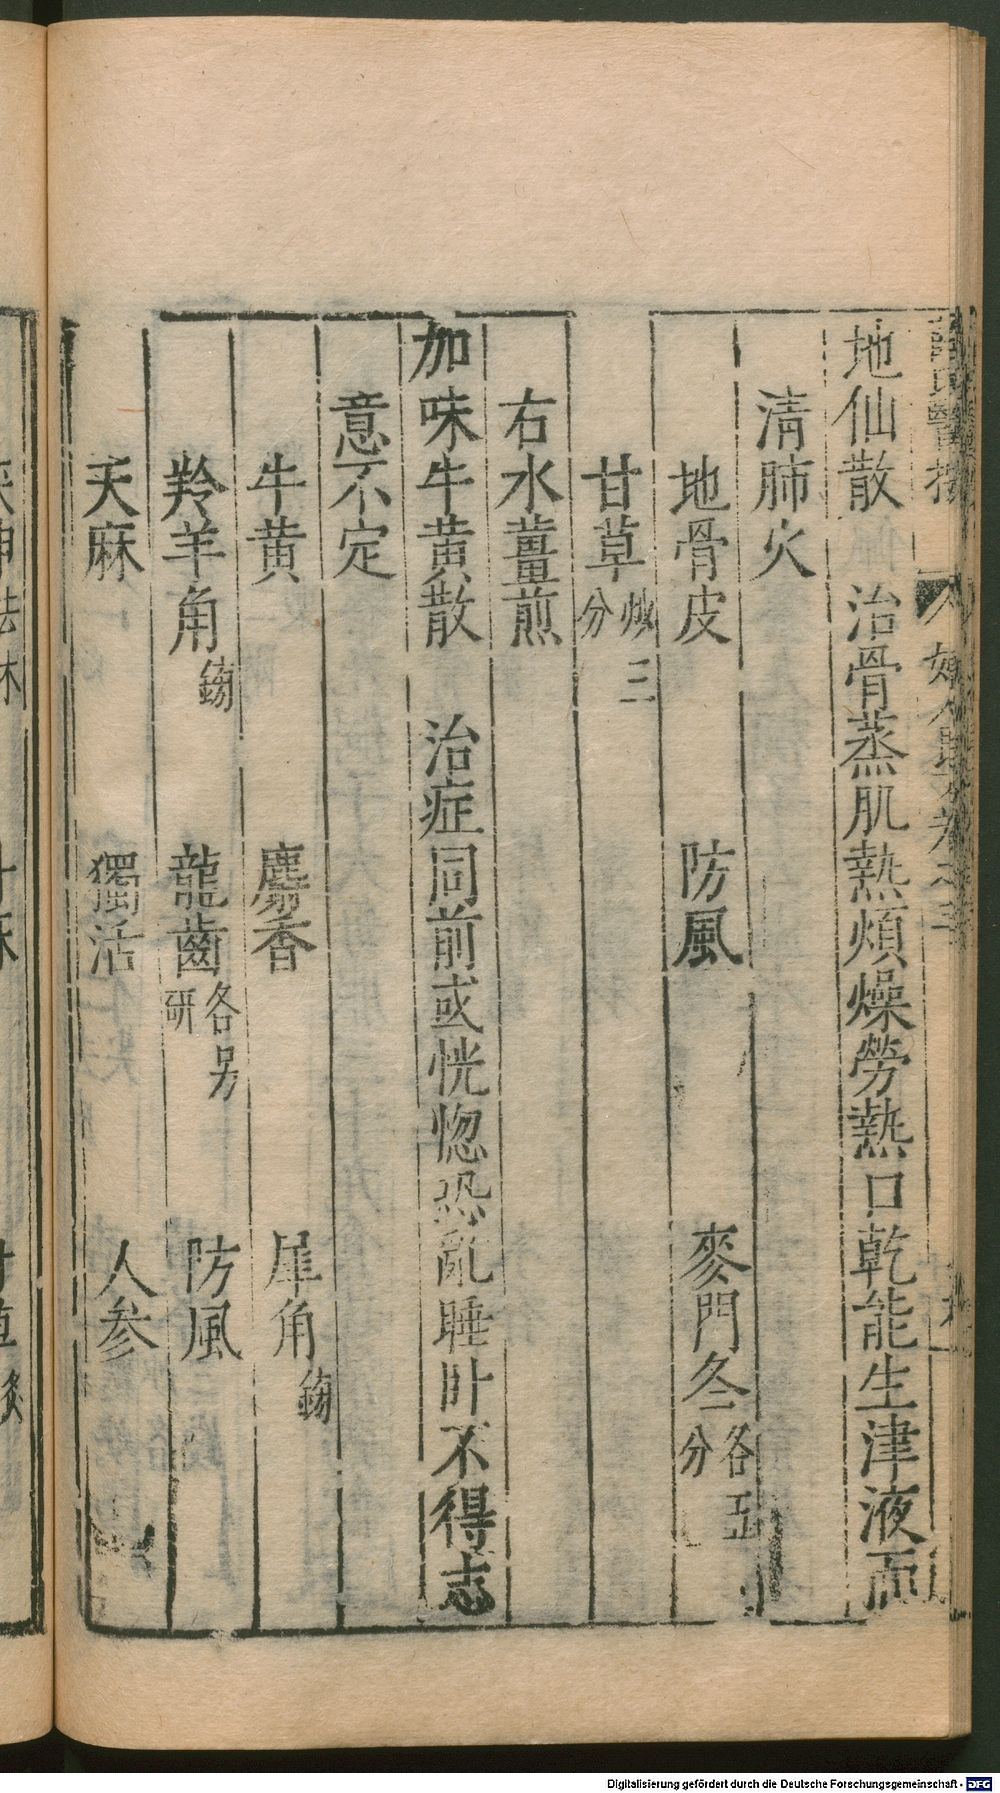 薛氏醫按
婦人良方卷之
地仙散 治骨蒸肌熱煩燥勞熱口乾能生津液而
清肺火
地骨皮 防風 麥門冬各五分
甘草炒三分
右水薑煎
加味牛黃散 治症同前或恍惚恐亂睡卧不得志
意不定
牛黃 麝香 犀角鎊
羚羊角鎊 龍齒各另研 防風
天麻 獨活 人參
Digitalisierung gefördert durch die Deutsche Forschungsgemeinschaft - DFG